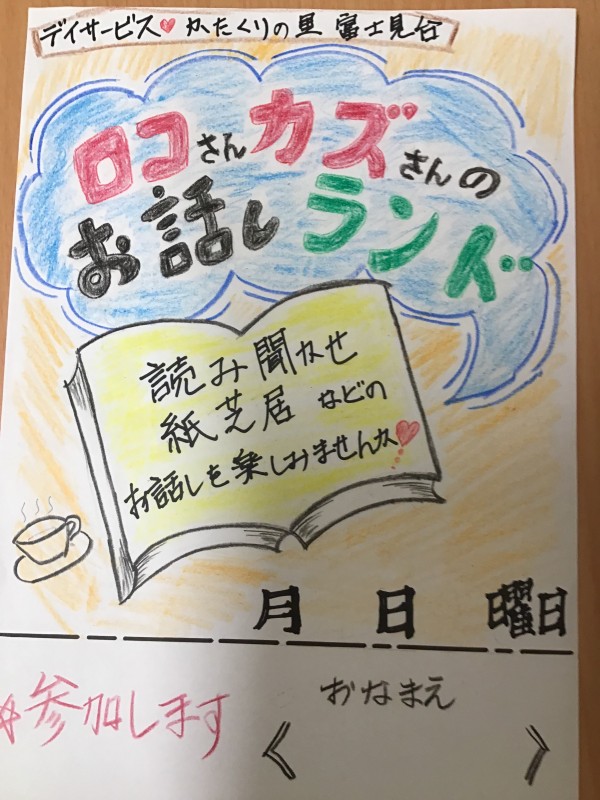 デイサービス♥かたくりの里 富士見台
ロコさんカズさんの
お話しランド
読み聞かせ
紙芝居 などの
お話しを楽しみませんか
月 日 曜日
☆参加します
おなまえ
〈 〉